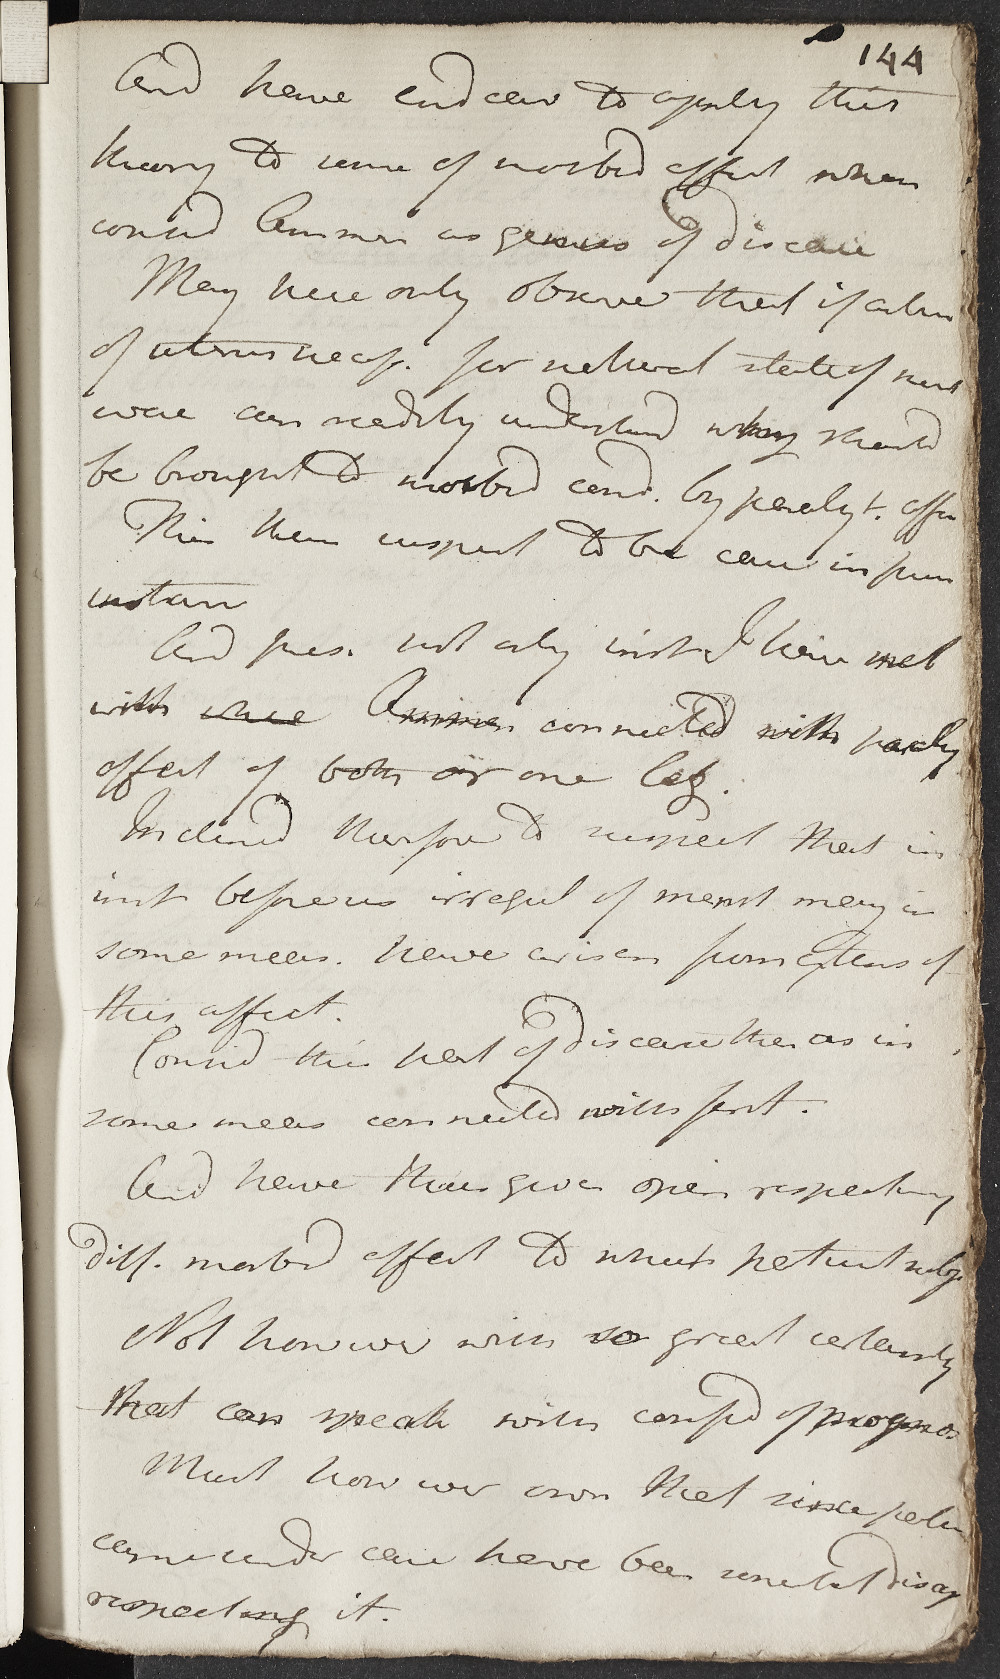 144
And have endeav to apply this
theory to some of morbid affect when
consid Amenor as genus of disease
May here only observe that if action
of uterus necess. for natural state of
we can readily understand why should
be brought to morbid cond. by paralyt. affe
This then suspect to be case in pres
instan
And pres. not only inst I have met
with where Amenor connected with paraly
affect of both or one leg.
Inclined therefore to suspect that in
inst before us irregul of menst may in
some meas. have arisen from extens of
this affect.
Consid this part of disease then as in
some meas connected with first.
And have thus given opin respecting
diff. morbid affect to which patient subj
Not however with so great certainty
that can speak with confid of prognos
Must however own that since patien
came under care have been somewhat disap
respecting it.